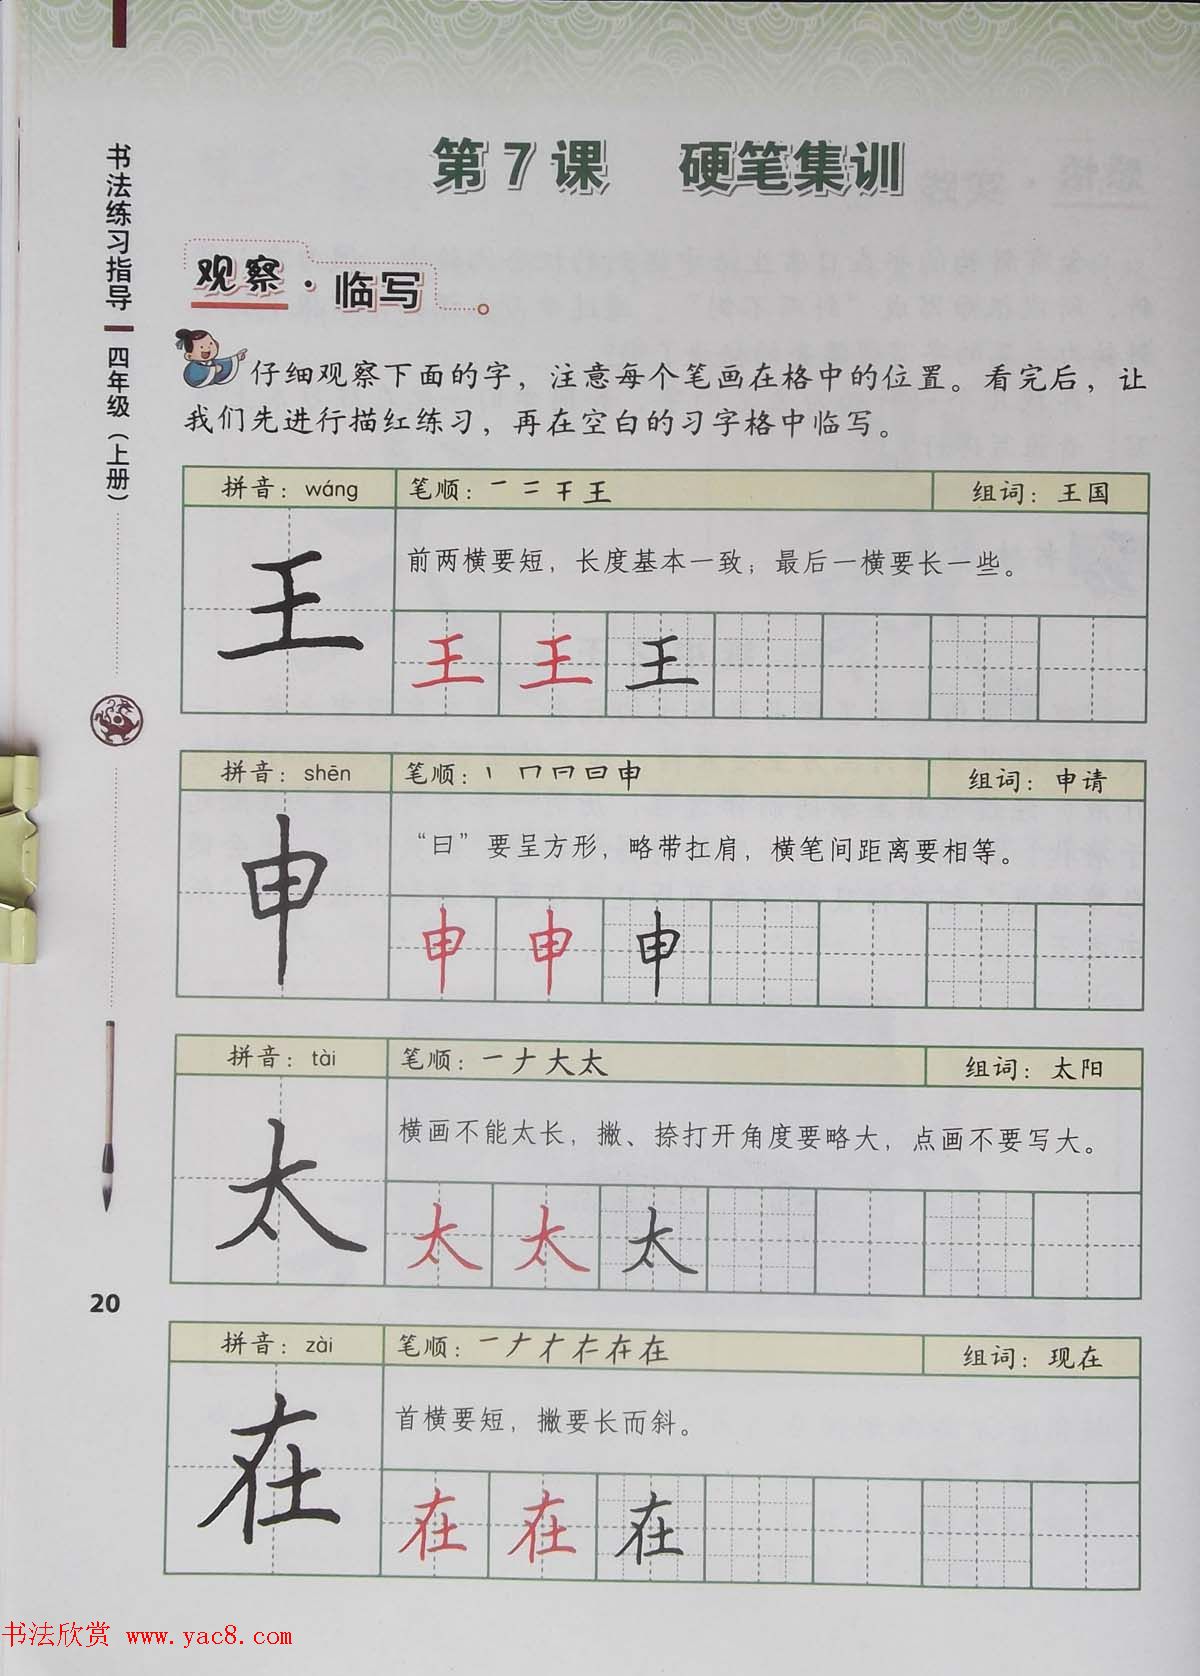 书法练习指导
四年级（上册）
第7课 硬笔集训
观察·临写
仔细观察下面的字，注意每个笔画在格中的位置。看完后，让
我们先进行描红练习，再在空白的习字格中临写。
拼音：wáng 笔顺：一 二 干 王 组词：王国
王
前两横要短，长度基本一致；最后一横要长一些。
王 王 王
拼音：shēn 笔顺：丨 冂 日 申 组词：申请
申
“曰”要呈方形，略带扛肩，横笔间距离要相等。
申 申 申
拼音：tài 笔顺：一 ナ 大 太 组词：太阳
太
横画不能太长，撇、捺打开角度要略大，点画不要写大。
太 太 太
拼音：zài 笔顺：一 ナ 在 组词：现在
在
首横要短，撇要长而斜。
在 在 在
20
书法欣赏 www.yac8.com